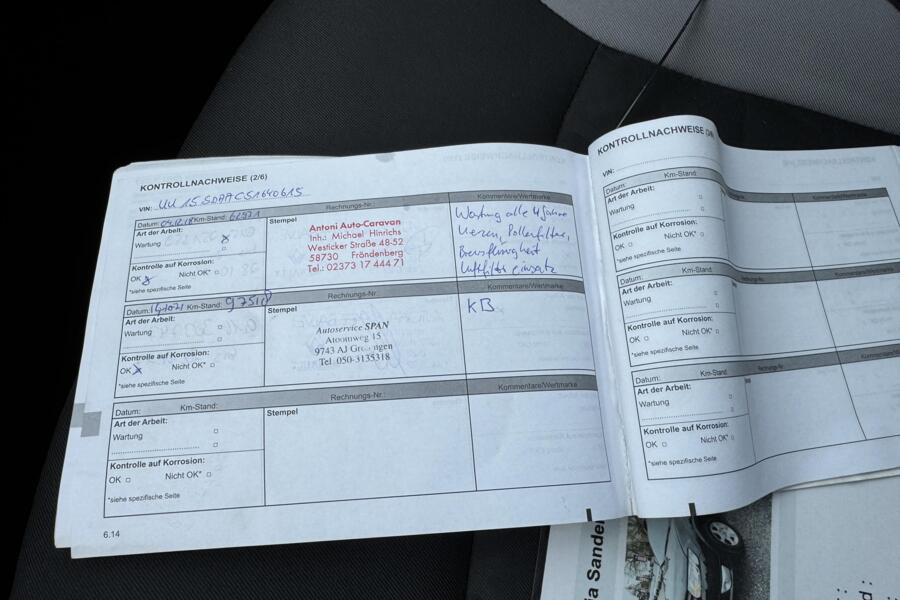 KONTROLLNACHWEISE (2/6)
VIN:
Datum: 04.12.18 Km-Stand:
Rechnungs-Nr.:
Kommentare/Wertmarke
Art der Arbeit:
Wartung
Kontrolle auf Korrosion:
OK Nicht OK*
*siehe spezifische Seite
Stempel
Antoni Auto-Caravan
Inh.: Michael Hinrichs
Westicker Straße 48-52
58730 Fröndenberg
Tel.: 02373 17 444 71
Wartung alle 4 Jahre
Kerzen, Pollenfilter,
Bremsflüssigkeit
Luftfilter einsatz
Datum: Km-Stand: 97518
Rechnungs-Nr.:
Kommentare/Wertmarke
Art der Arbeit:
Wartung
Kontrolle auf Korrosion:
OK Nicht OK*
*siehe spezifische Seite
Stempel
Autoservice SPAN
Atoomweg 15
9743 AJ Groningen
Tel. 050-3135318
KB
Datum: Km-Stand:
Rechnungs-Nr.:
Kommentare/Wertmarke
Art der Arbeit:
Wartung
Kontrolle auf Korrosion:
OK Nicht OK*
*siehe spezifische Seite
Stempel
6.14
KONTROLLNACHWEISE
VIN:
Datum: Km-Stand:
Art der Arbeit:
Wartung
Kontrolle auf Korrosion:
OK Nicht OK*
*siehe spezifische Seite
Datum: Km-Stand:
Art der Arbeit:
Wartung
Kontrolle auf Korrosion:
OK Nicht OK*
*siehe spezifische Seite
Datum: Km-Stand:
Art der Arbeit:
Wartung
Kontrolle auf Korrosion:
OK Nicht OK*
*siehe spezifische Seite